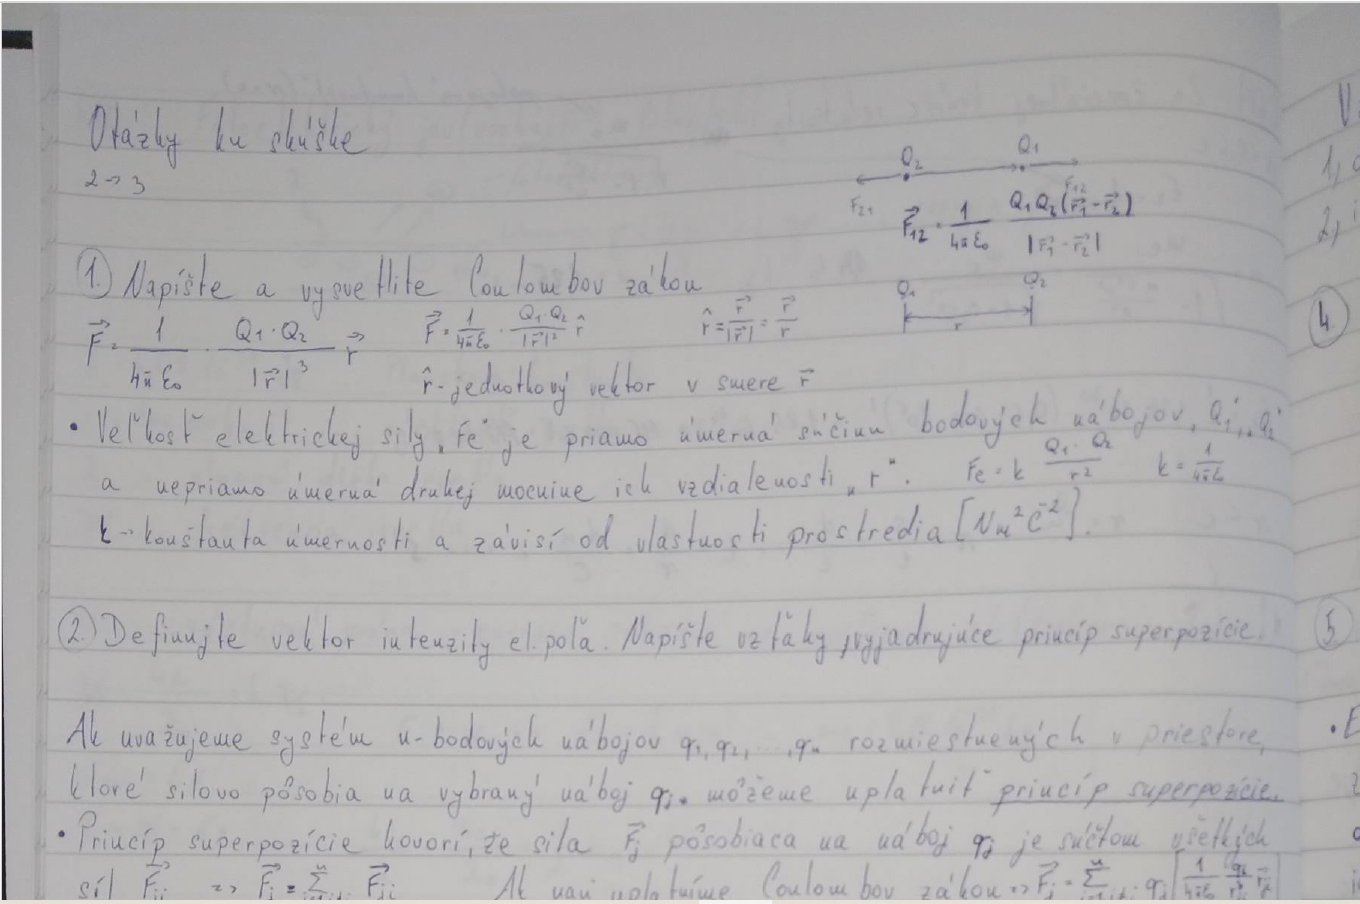 Otázky ku skúške
2 -> 3
Q₂ Q₁
F₂₁ F₁₂
F⃗₁₂ = 1/(4πε₀) Q₁Q₂(r⃗₁-r⃗₂)/|r⃗₁-r⃗₂|
1. Napíšte a vysvetlite Coulombov zákon
Q₁ Q₂
r
F⃗ = 1/(4πε₀) · Q₁·Q₂/|r⃗|³ r⃗ F⃗ = 1/(4πε₀) · Q₁·Q₂/|r⃗|² r̂ r̂ = r⃗/|r⃗| = r⃗/r
r̂ - jednotkový vektor v smere r⃗
• Veľkosť elektrickej sily „Fe" je priamo úmerná súčinu bodových nábojov „Q₁", „Q₂"
a nepriamo úmerná druhej mocnine ich vzdialenosti „r". Fe = k Q₁·Q₂/r² k = 1/(4πε)
k -> konštanta úmernosti a závisí od vlastnosti prostredia [Nm²C⁻²].
2. Definujte vektor intenzity el. poľa. Napíšte vzťahy vyjadrujúce princíp superpozície.
Ak uvažujeme systém n-bodových nábojov q₁, q₂, ..., qₙ rozmiestnených v priestore,
ktoré silovo pôsobia na vybraný náboj qⱼ. môžeme uplatniť princíp superpozície.
• Princíp superpozície hovorí, že sila F⃗ⱼ pôsobiaca na náboj qⱼ je súčtom všetkých
síl F⃗ᵢⱼ => F⃗ⱼ = Σ F⃗ⱼᵢ Ak naň uplatníme Coulombov zákon => F⃗ⱼ = Σ qⱼ [1/(4πε₀)
V
1,
2,
4.
5
• E